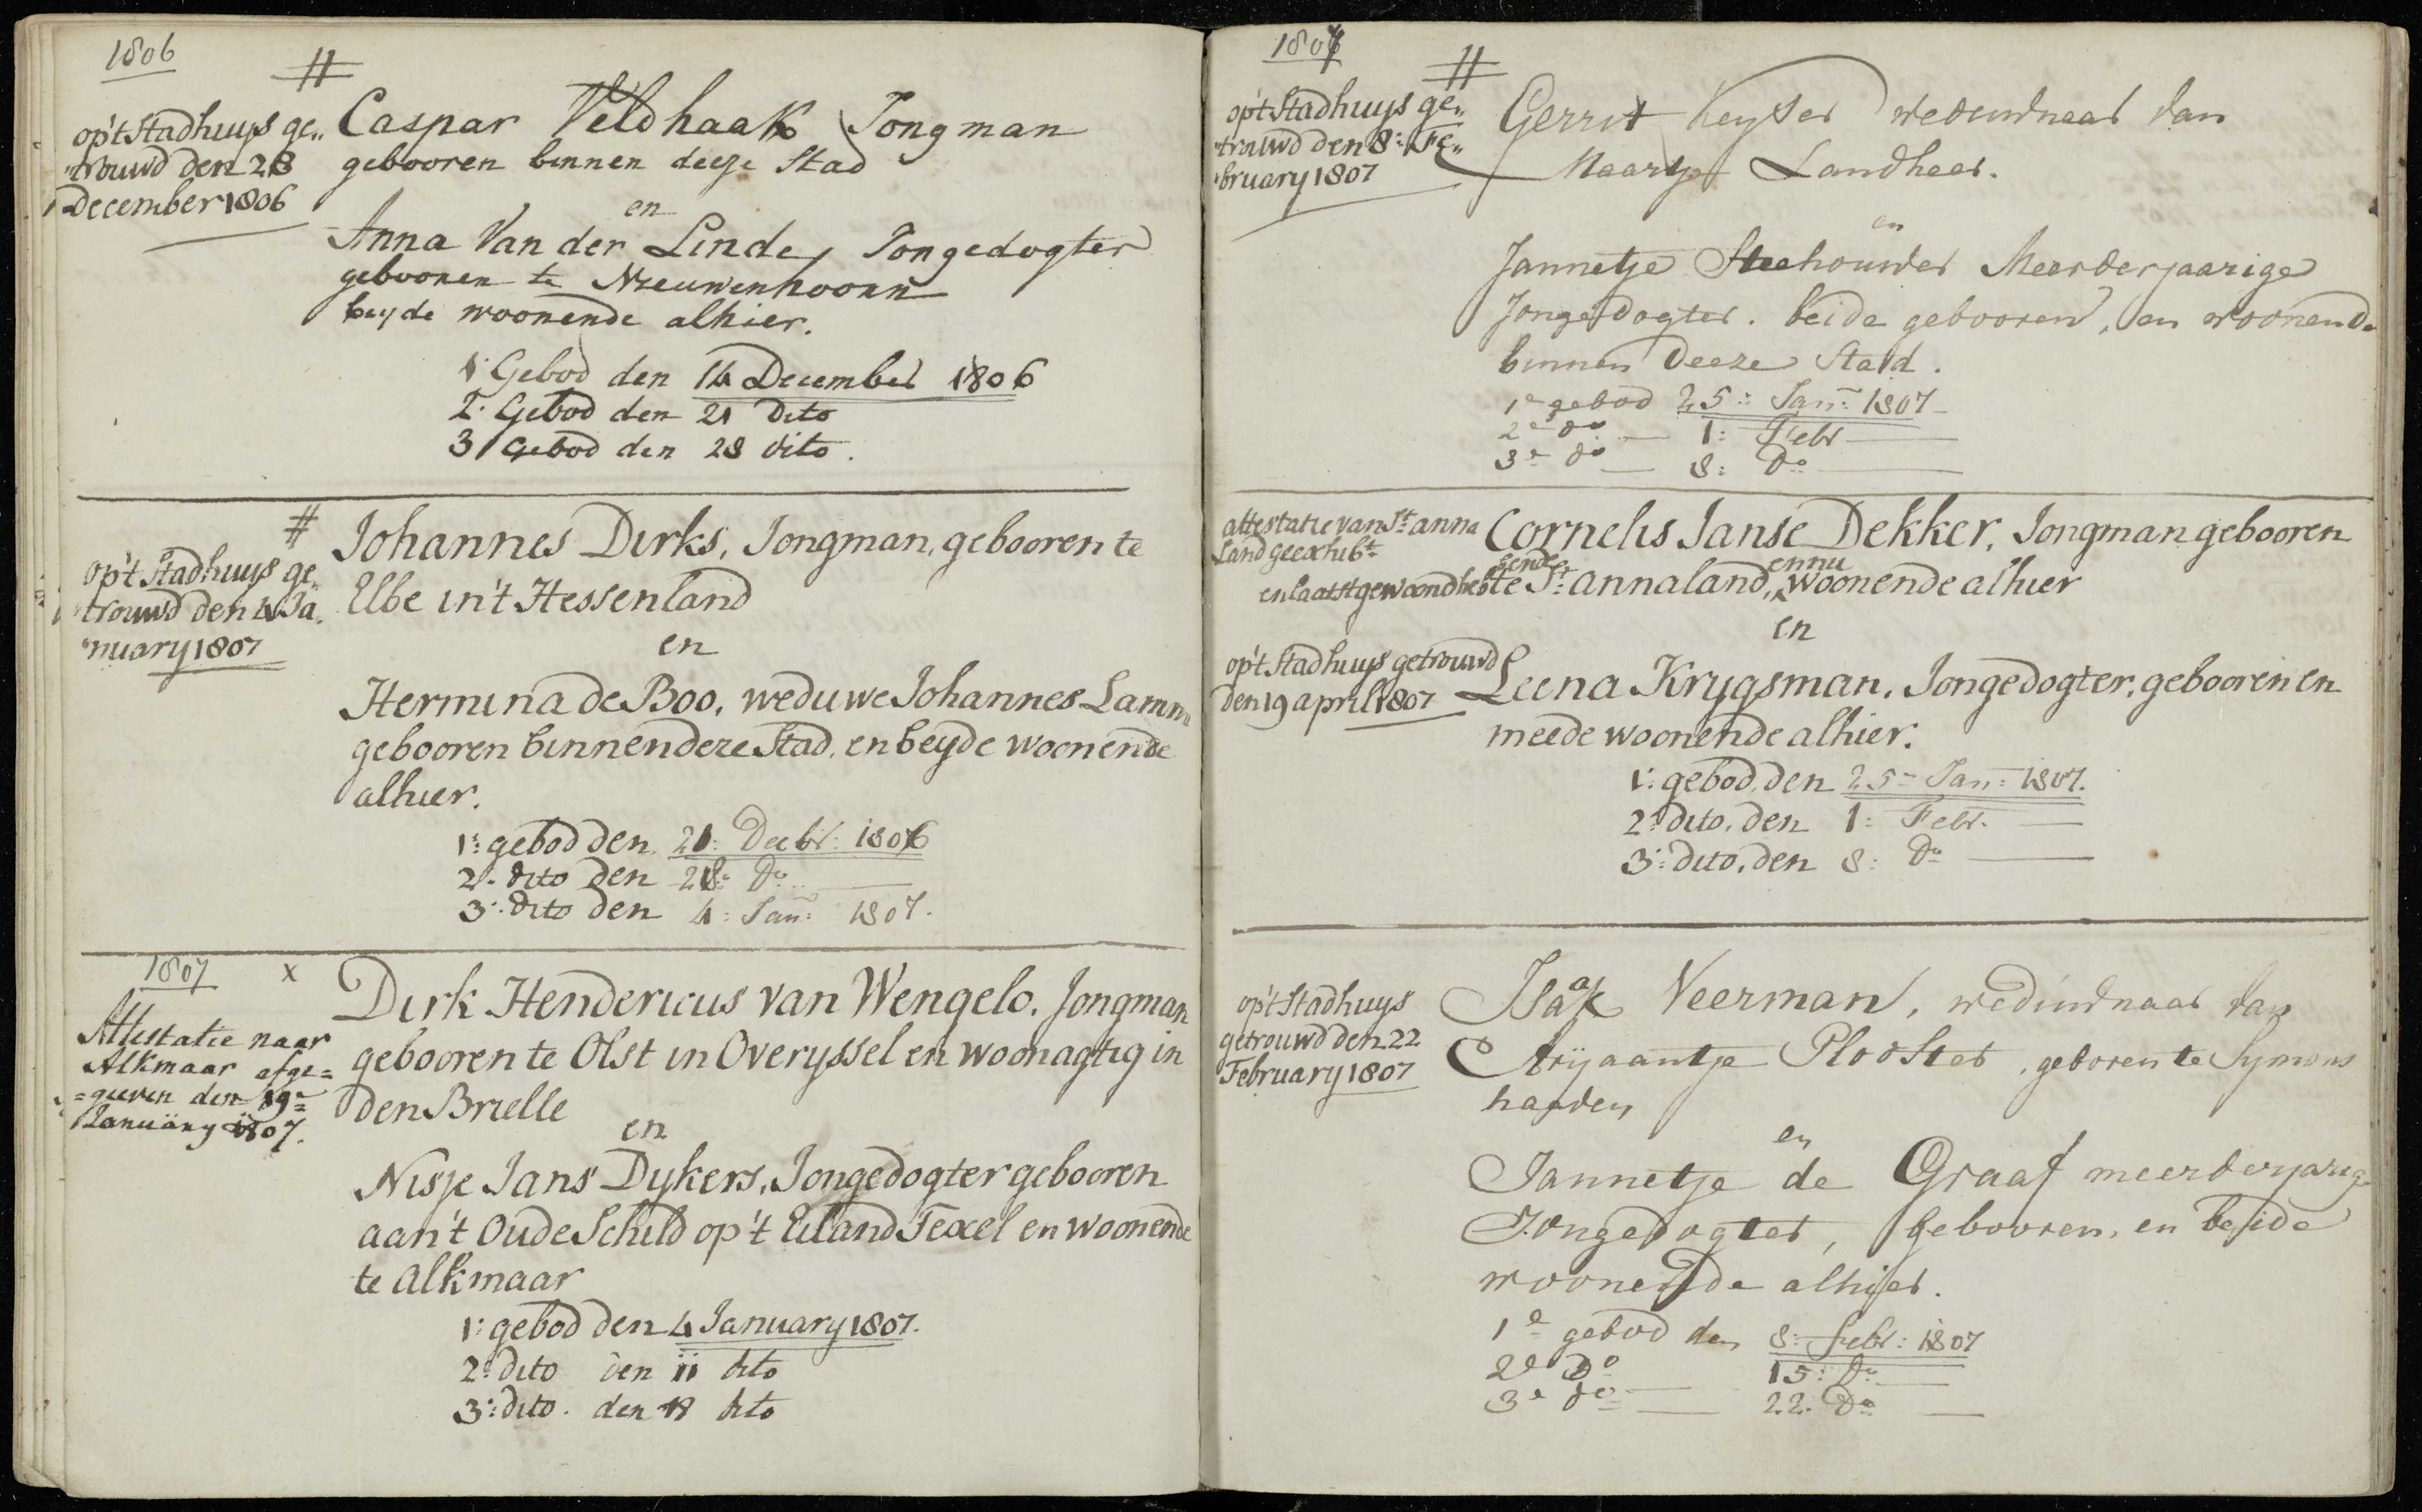 1806
#
op't Stadhuys ge„
„trouwd den 28
December 1806
Caspar Veldhaak Jongman
gebooren binnen deeze Stad
en
Anna Van der Linde, Jongedogter
gebooren te Nieuwenhoorn
beyde woonende alhier.
1 Gebod den 14 December 1806
2. Gebod den 21 Dito
3 Gebod den 28 dito.
#
op't Stadhuys ge„
trouwd den 4 Ja„
„nuary 1807
Johannes Dirks, Jongman, gebooren te
Elbe in't Hessenland
en
Hermina de Boo, weduwe Johannes Lamm
gebooren binnen deze Stad, en beyde woonende
alhier.
1: gebod den 21: Decbr: 1806
2: dito den 28: Do
3: dito den 4: Jan: 1807.
1807
x
Attestatie naar
Alkmaar afge=
=geeven den 19e
January 1807.
Dirk Hendericus van Wengelo, Jongman
gebooren te Olst in Overyssel en woonagtig in
den Brielle
en
Nisje Jans Dykers, Jongedogter gebooren
aan't Oude Schild op't Eiland Texel en woonende
te Alkmaar
1: gebod den 4 January 1807.
2: dito den 11 dito
3: dito. den 18 dito
1807
#
op't Stadhuys ge„
„trouwd den 8: Fe„
„bruary 1807
Gerrit Keyser weduwnaar van
Maartje Landheer.
en
Jannetje Steehouwer Meerderjaarige
Jongedogter. beide gebooren, en woonende
binnen Deeze Stad.
1e gebod 25: Jan: 1807
2e do 1: Febr
3e do 8: Do
attestatie van St anna
Land geexhibt
en laatst gewoond heb
bende
te St: annaland, en nu woonende alhier
op't Stadhuys getrouwd
den 19 april 1807
Cornelis Janse Dekker, Jongman gebooren
en
Leena Krygsman, Jongedogter, gebooren en
meede woonende alhier.
1: gebod, den 25 Jan: 1807.
2: dito, den 1: Febr.
3: dito, den 8: Do
op't Stadhuys
getrouwd den 22
February 1807
Isaak Veerman, weduwnaar van
Arijaantje Plooster, geboren te Symons
haven
en
Jannetje de Graaf meerderjarige
Jongedogter, Gebooren, en beide
woonende alhier.
1e gebod den 8: Febr: 1807
2e Do 15: Do
3e do 22: Do